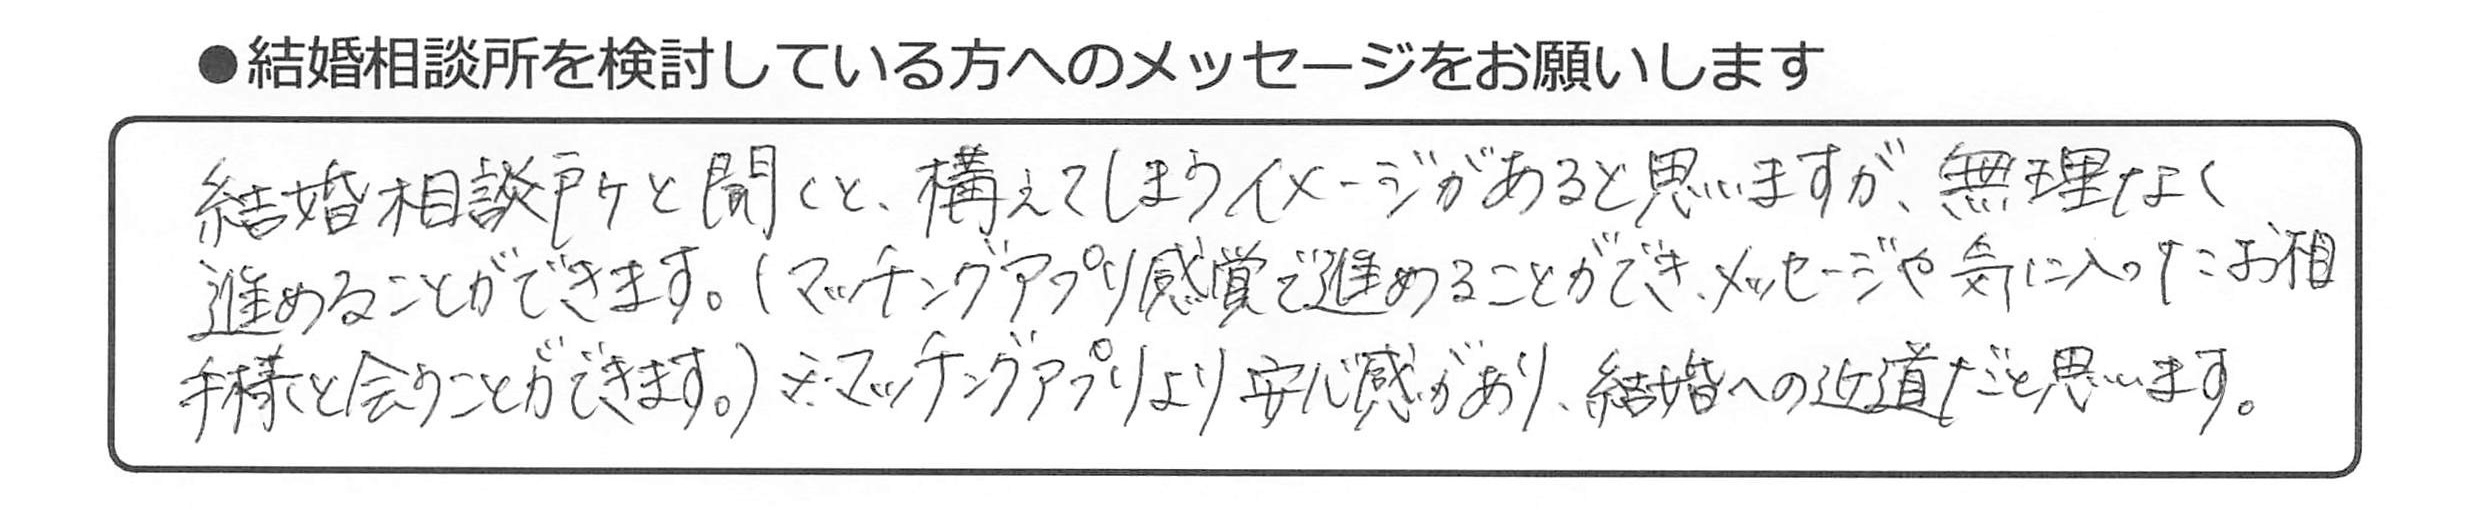 ●結婚相談所を検討している方へのメッセージをお願いします
結婚相談所と聞くと、構えてしまうイメージがあると思いますが、無理なく
進めることができます。(マッチングアプリ感覚で進めることができ、メッセージや気に入ったお相
手様と会うことができます。)※マッチングアプリより安心感があり、結婚への近道だと思います。